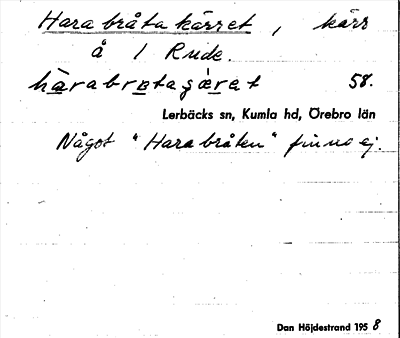 Hara bråta kärret, kärr
å 1 Rude.
hàrabrɒtaçæ̀ret 58.
Lerbäcks sn, Kumla hd, Örebro län
Något "Hara bråten" finns ej.
Dan Höjdestrand 1958